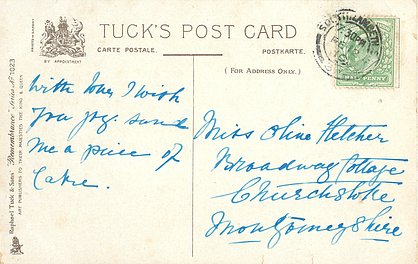 TUCK'S POST CARD
CARTE POSTALE.
POSTKARTE.
BY APPOINTMENT
(FOR ADDRESS ONLY.)
Raphael Tuck & Sons' "Remembrance" Series No 1023
ART PUBLISHERS TO THEIR MAJESTIES THE KING & QUEEN
With love I wish
you joy. send
me a piece of
Cake.
Miss Olive Fletcher
Broadway Cottage
Churchstoke
Montgomeryshire
HALF PENNY